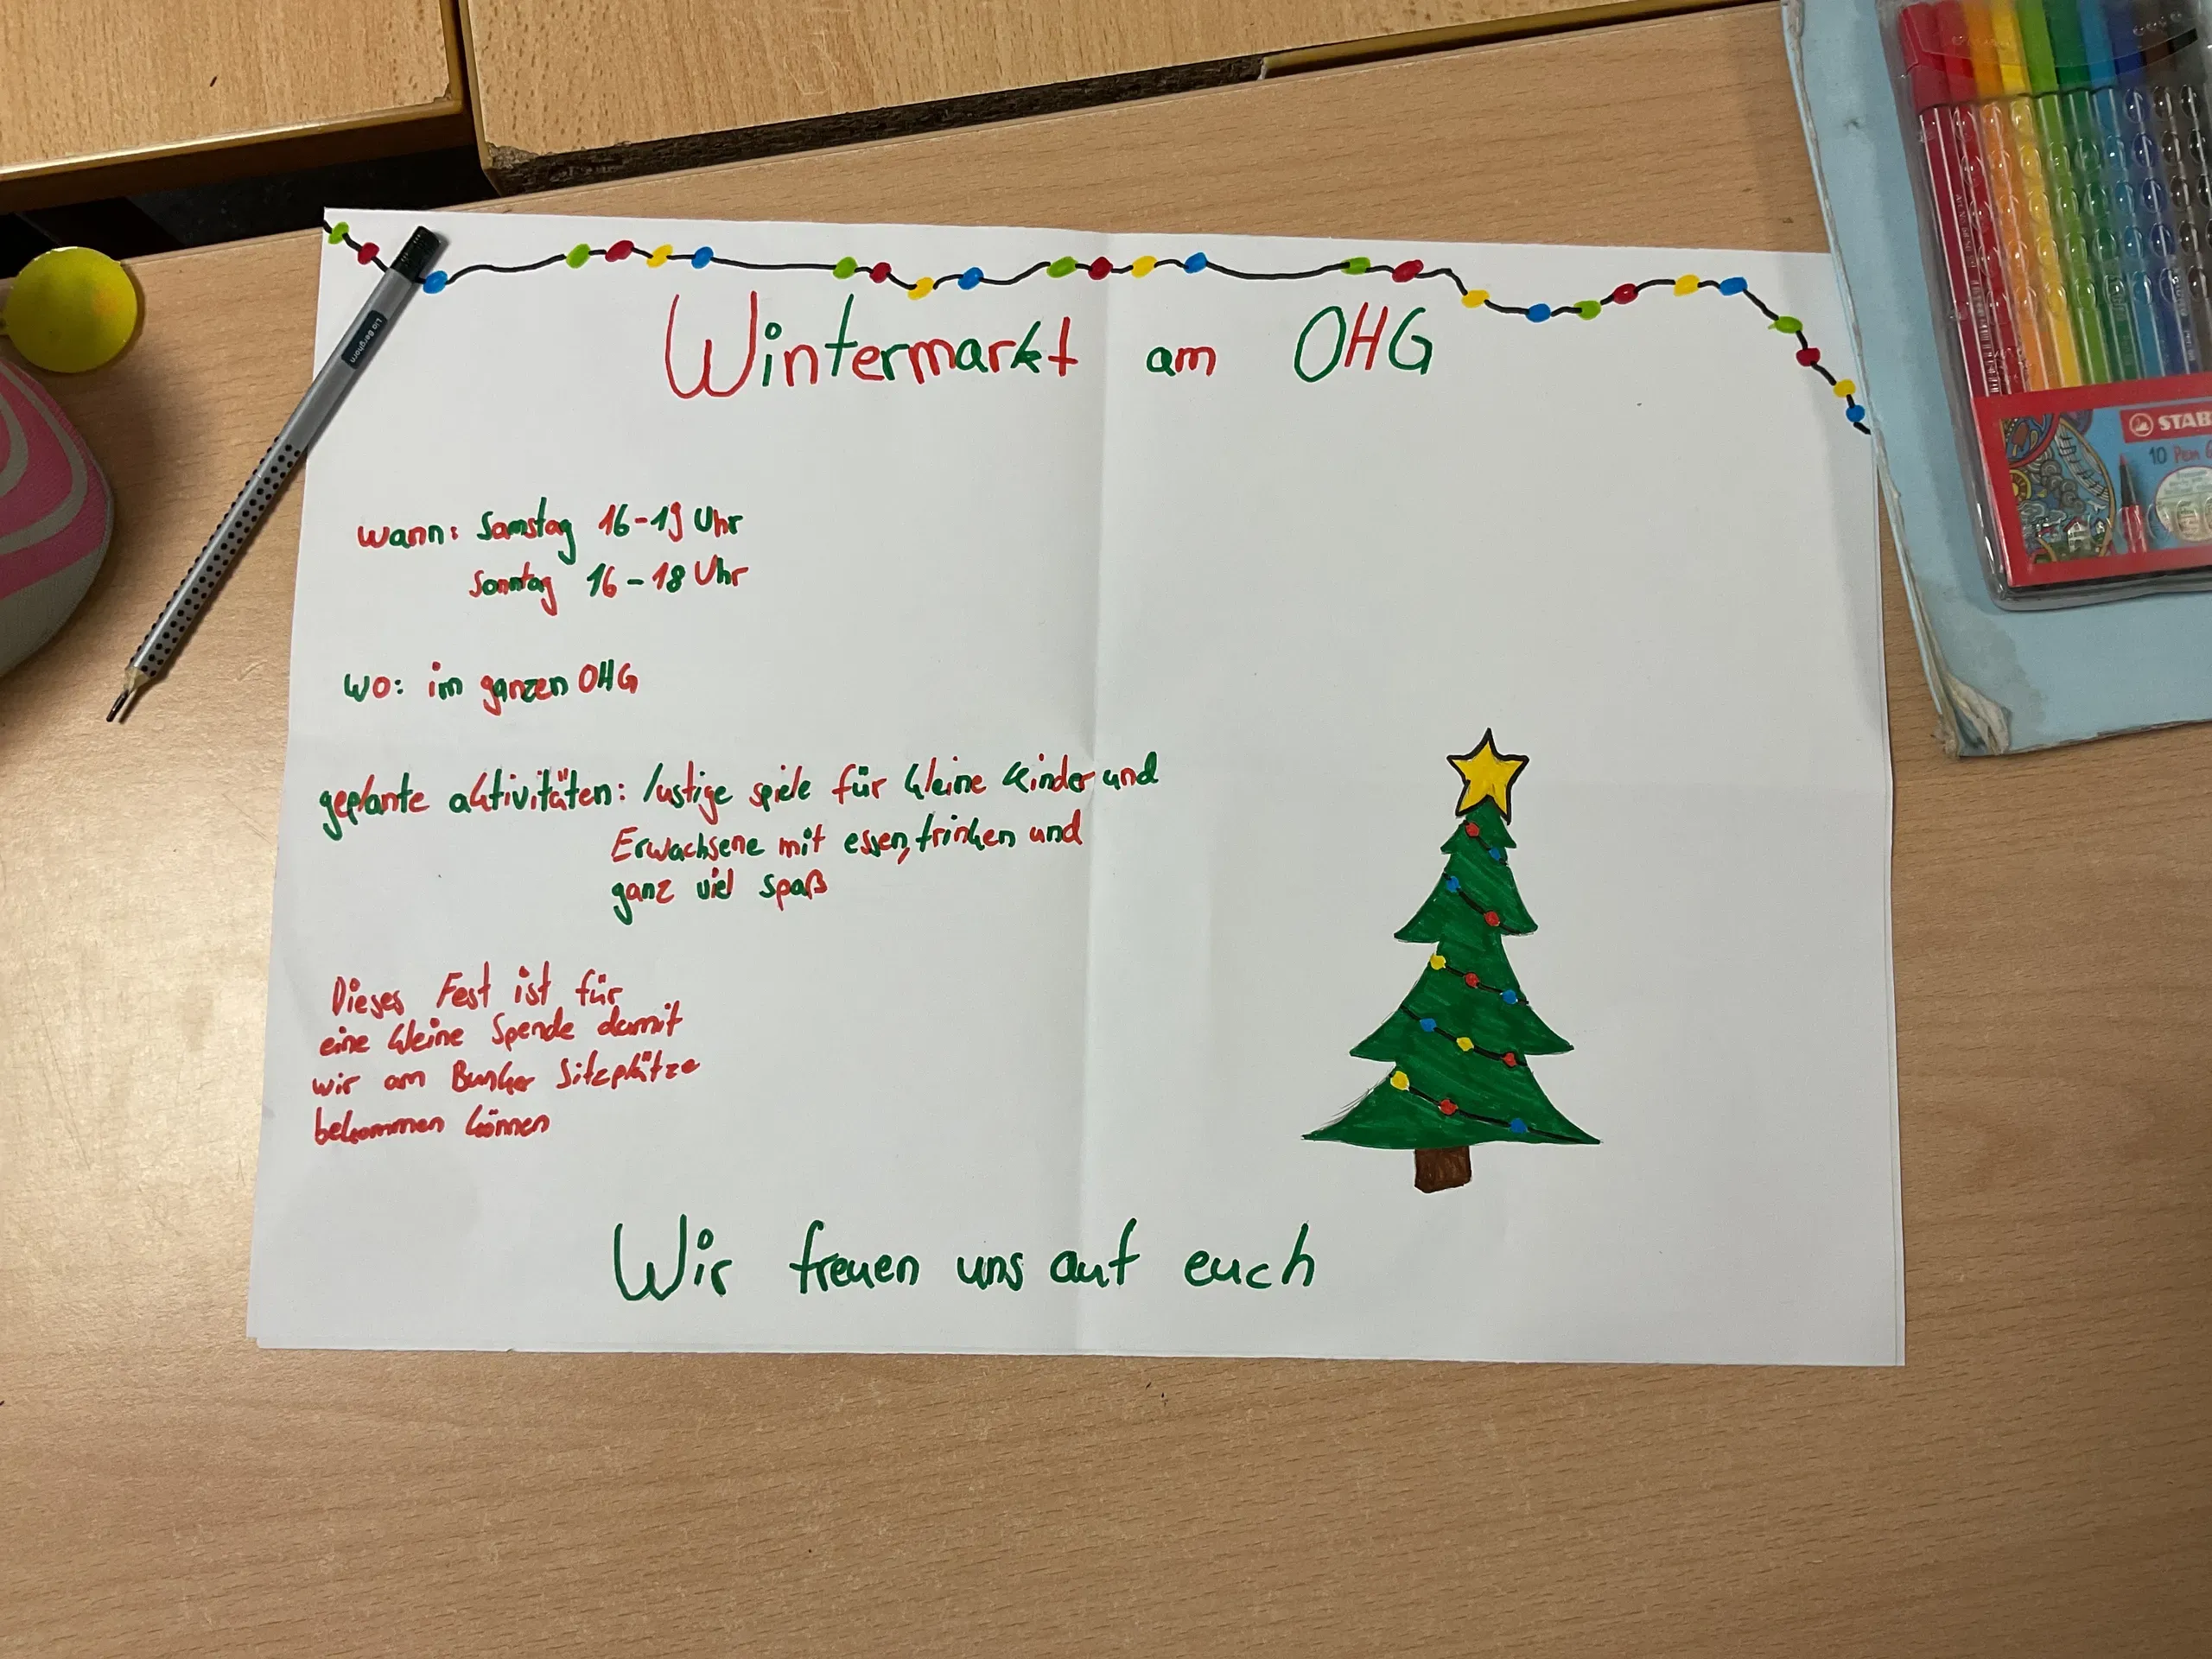 Wintermarkt am OHG
wann: Samstag 16-19 Uhr
Sonntag 16-18 Uhr
wo: im ganzen OHG
geplante aktivitäten: lustige spiele für kleine kinder und
Erwachsene mit essen, trinken und
ganz viel spaß
Dieses Fest ist für
eine kleine Spende damit
wir am Bunker Sitzplätze
bekommen können
Wir freuen uns auf euch
Lia Berghorn
STAB
10 Pen